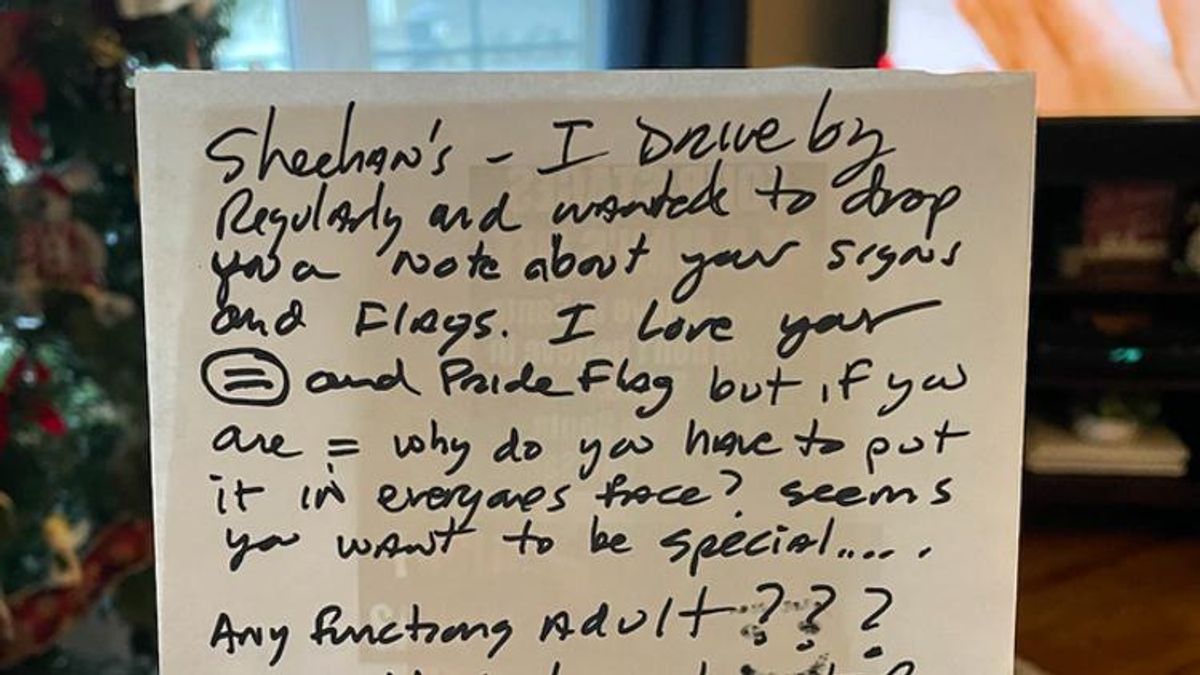 Sheehan's - I Drive by
Regularly and wanted to drop
you a note about your signs
and Flags. I Love your
= and Pride Flag but if you
are = why do you have to put
it in everyones face? seems
you want to be special.....
Any functiong Adult ???